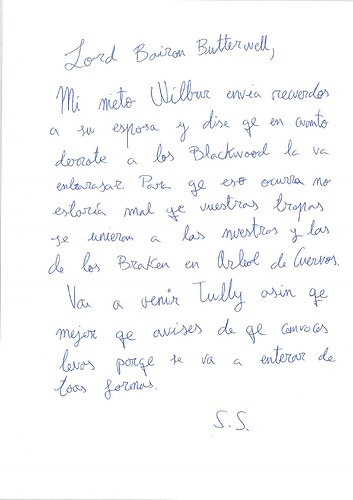 Lord Bairon Butterwell,
Mi nieto Wilbur envia recuerdos
a su esposa y dise qe en cuanto
derrote a los Blackwood la va
embarasar Para qe eso ocurra no
estaría mal qe vuestras tropas
se unieran a las nuestras y las
de los Braken en Arbol de Cuervos.
Va a venir Tully asin qe
mejor qe avises de qe convocas
levas porqe se va a enterar de
toas formas.
S.S.